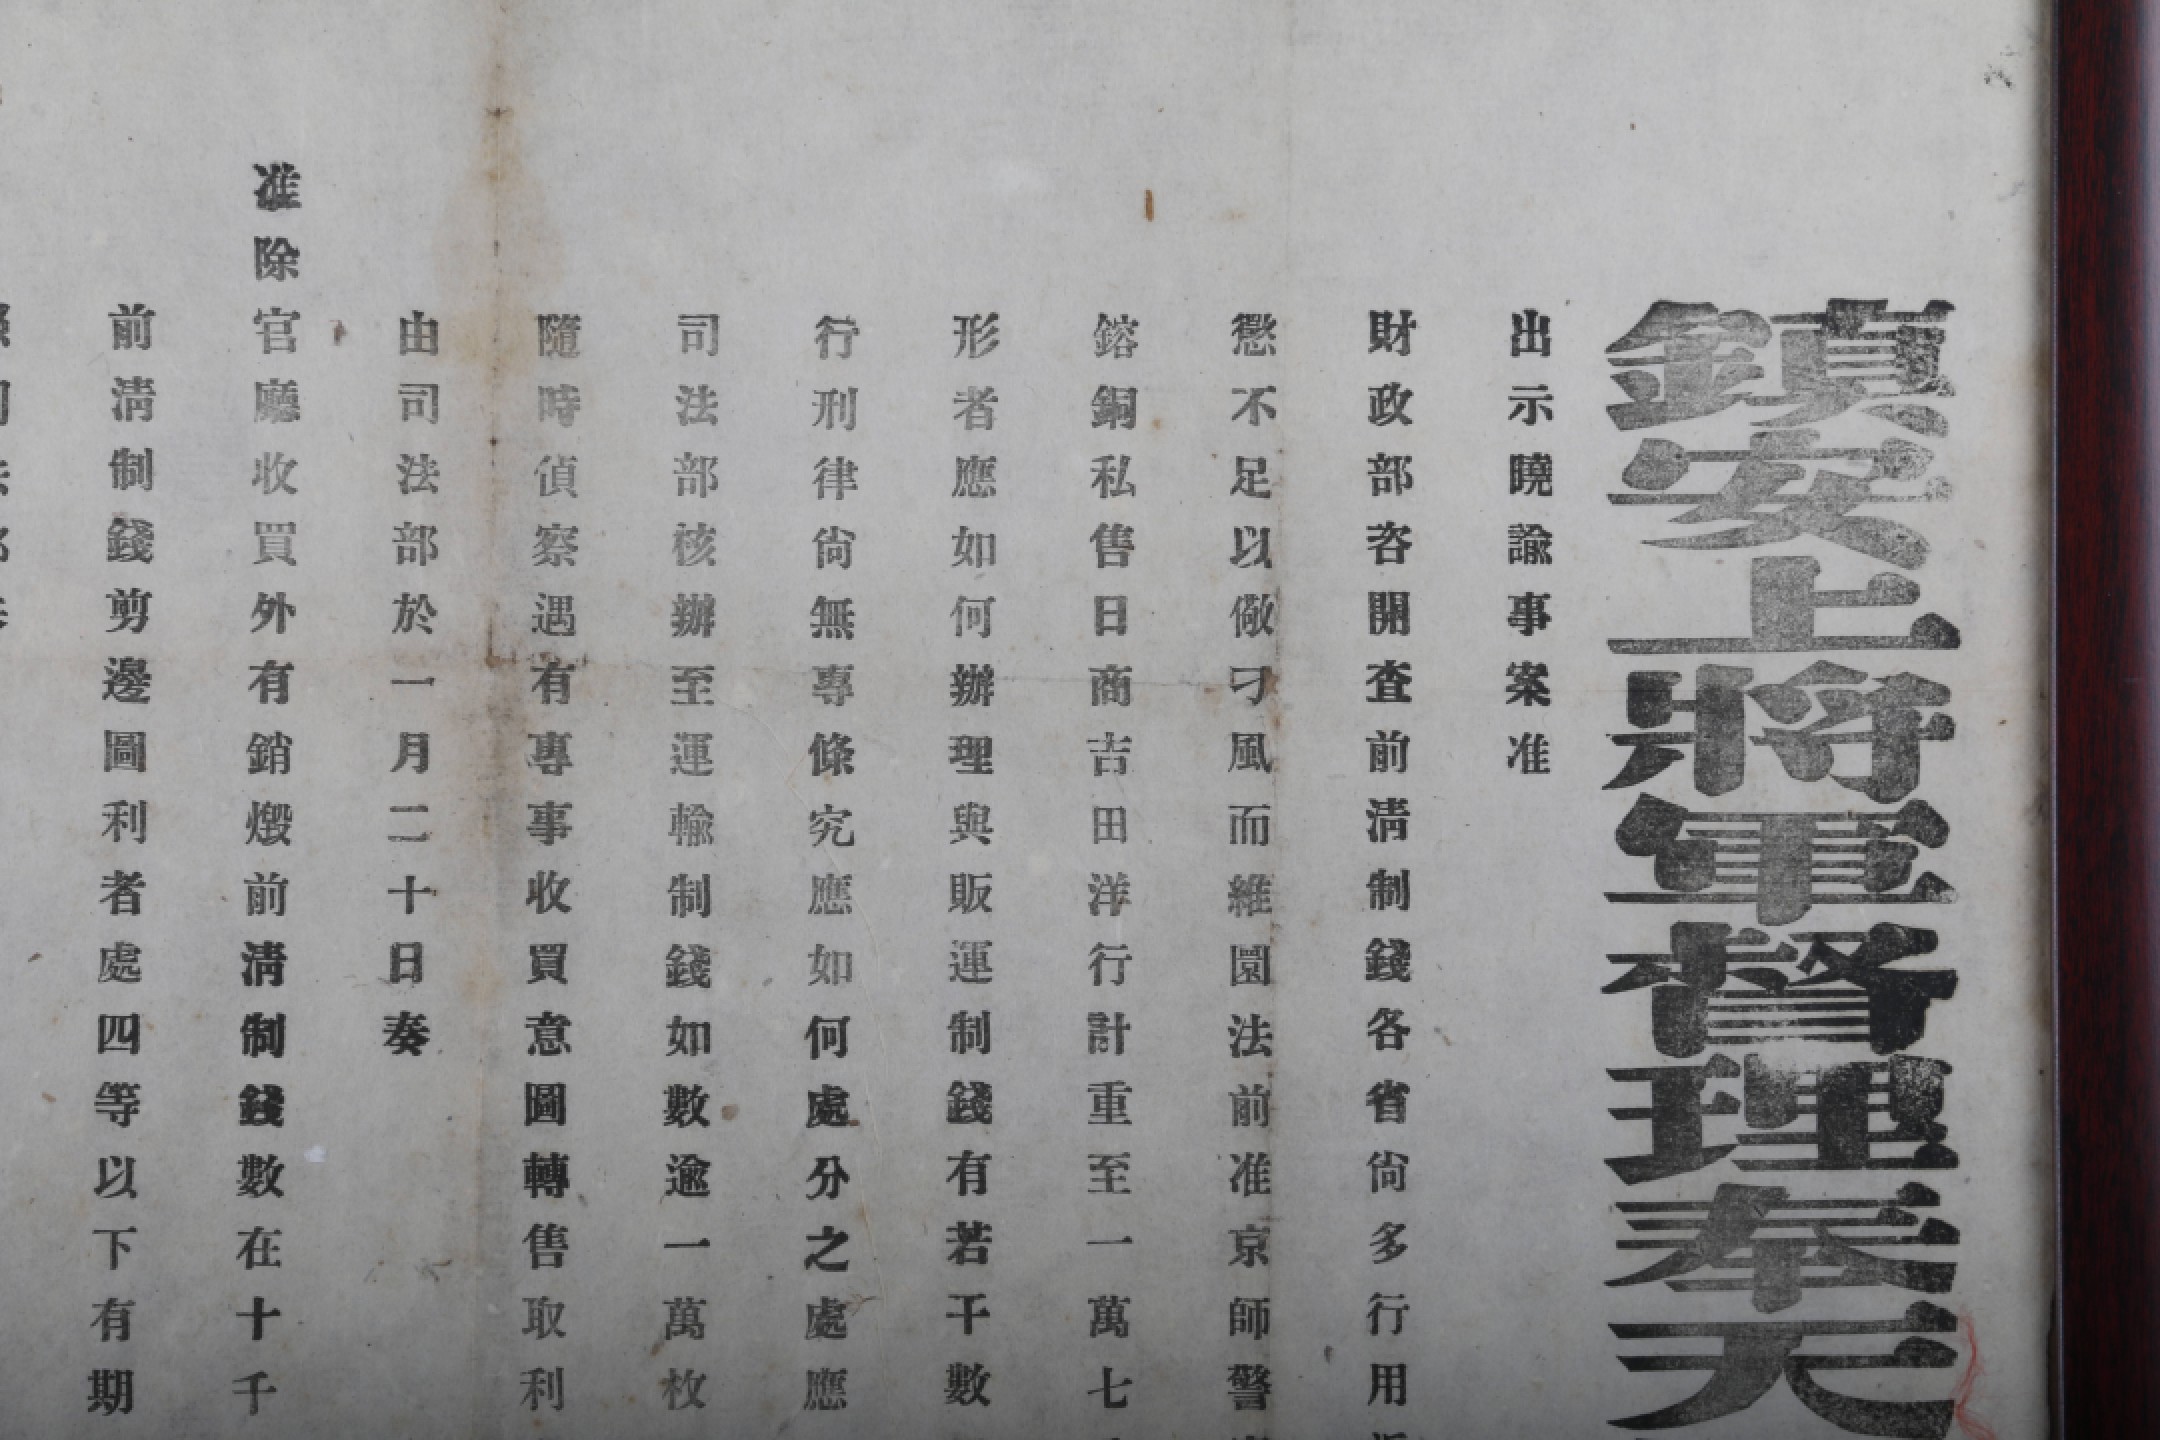 鎮安上將軍督理奉天
出示曉諭事案准
財政部咨開查前淸制錢各省尙多行用
懲不足以儆刁風而維圜法前准京師警
鎔銅私售日商吉田洋行計重至一萬七
形者應如何辦理與販運制錢有若干數
行刑律尙無專條究應如何處分之處應
司法部核辦至運輸制錢如數逾一萬枚
隨時偵察遇有專事收買意圖轉售取利
由司法部於一月二十日奏
准除官廳收買外有銷燬前淸制錢數在十千
前淸制錢剪邊圖利者處四等以下有期